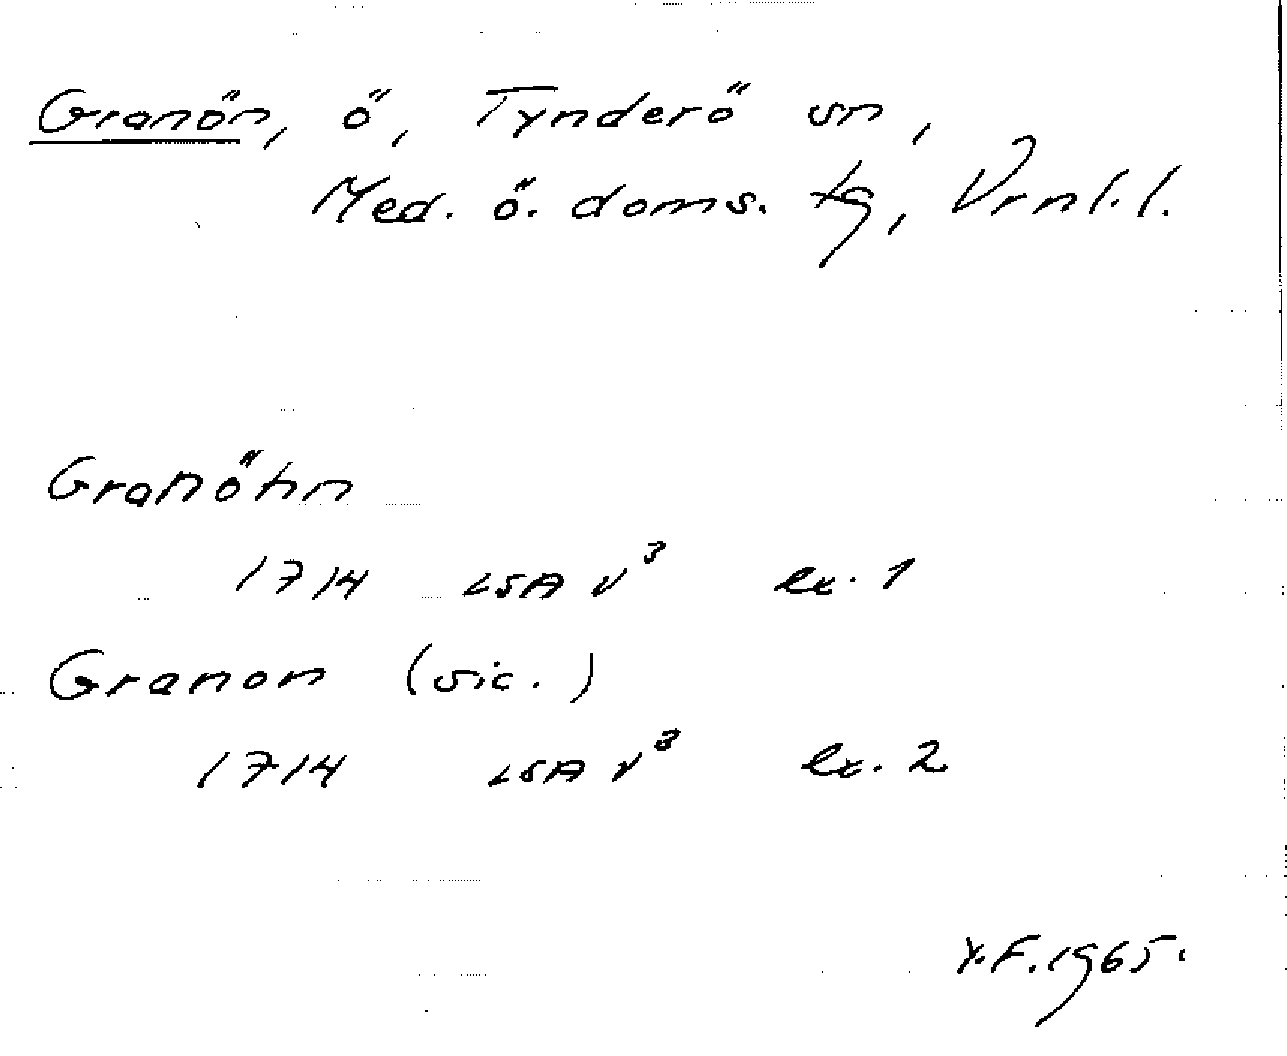 Granön, ö, Tynderö sn,
Med. ö. doms. tg, Vrnl. l.
Granöhn
1714 LSA V³ ex. 1
Granon (sic.)
1714 LSA V³ ex. 2
Y.F. 1965.